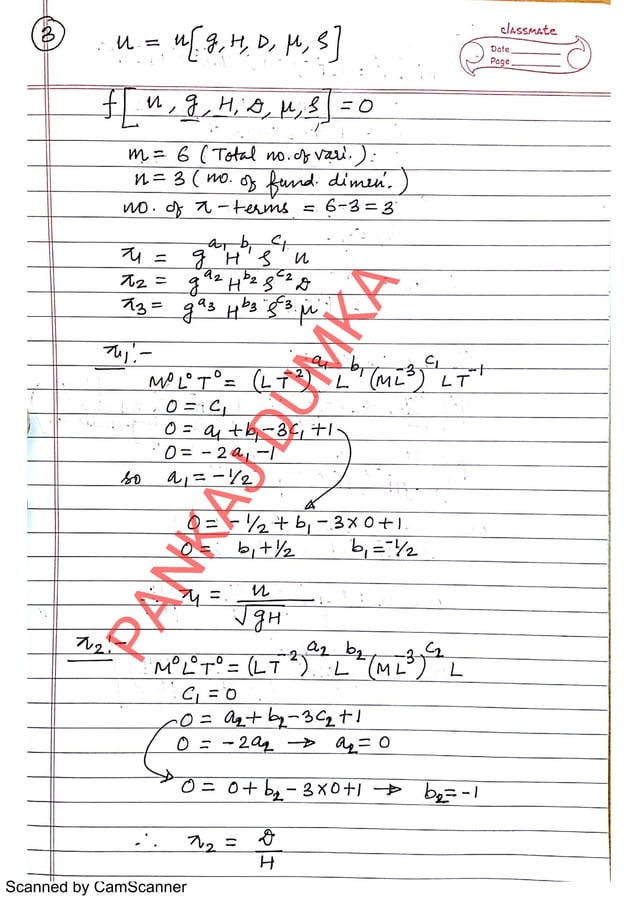 ③
classmate
Date
Page
u = u[g, H, D, μ, ρ]
f[u, g, H, D, μ, ρ] = 0
m = 6 (Total no. of vari.):
n = 3 (no. of fund. dimen.)
no. of π-terms = 6-3 = 3
π1 = g^a1 H^b1 ρ^c1 u
π2 = g^a2 H^b2 ρ^c2 D
π3 = g^a3 H^b3 ρ^c3 μ
π1:-
M⁰L⁰T⁰ = (LT⁻²)^a1 L^b1 (ML⁻³)^c1 LT⁻¹
0 = c1
0 = a1 + b1 - 3c1 + 1
0 = -2a1 - 1
so a1 = -1/2
0 = -1/2 + b1 - 3×0 + 1
0 = b1 + 1/2 b1 = -1/2
∴ π1 = u / √gH
π2:-
M⁰L⁰T⁰ = (LT⁻²)^a2 L^b2 (ML⁻³)^c2 L
C1 = 0
0 = a2 + b2 - 3c2 + 1
0 = -2a2 → a2 = 0
0 = 0 + b2 - 3×0 + 1 → b2 = -1
∴ π2 = D / H
PANKAJ DUMKA
Scanned by CamScanner